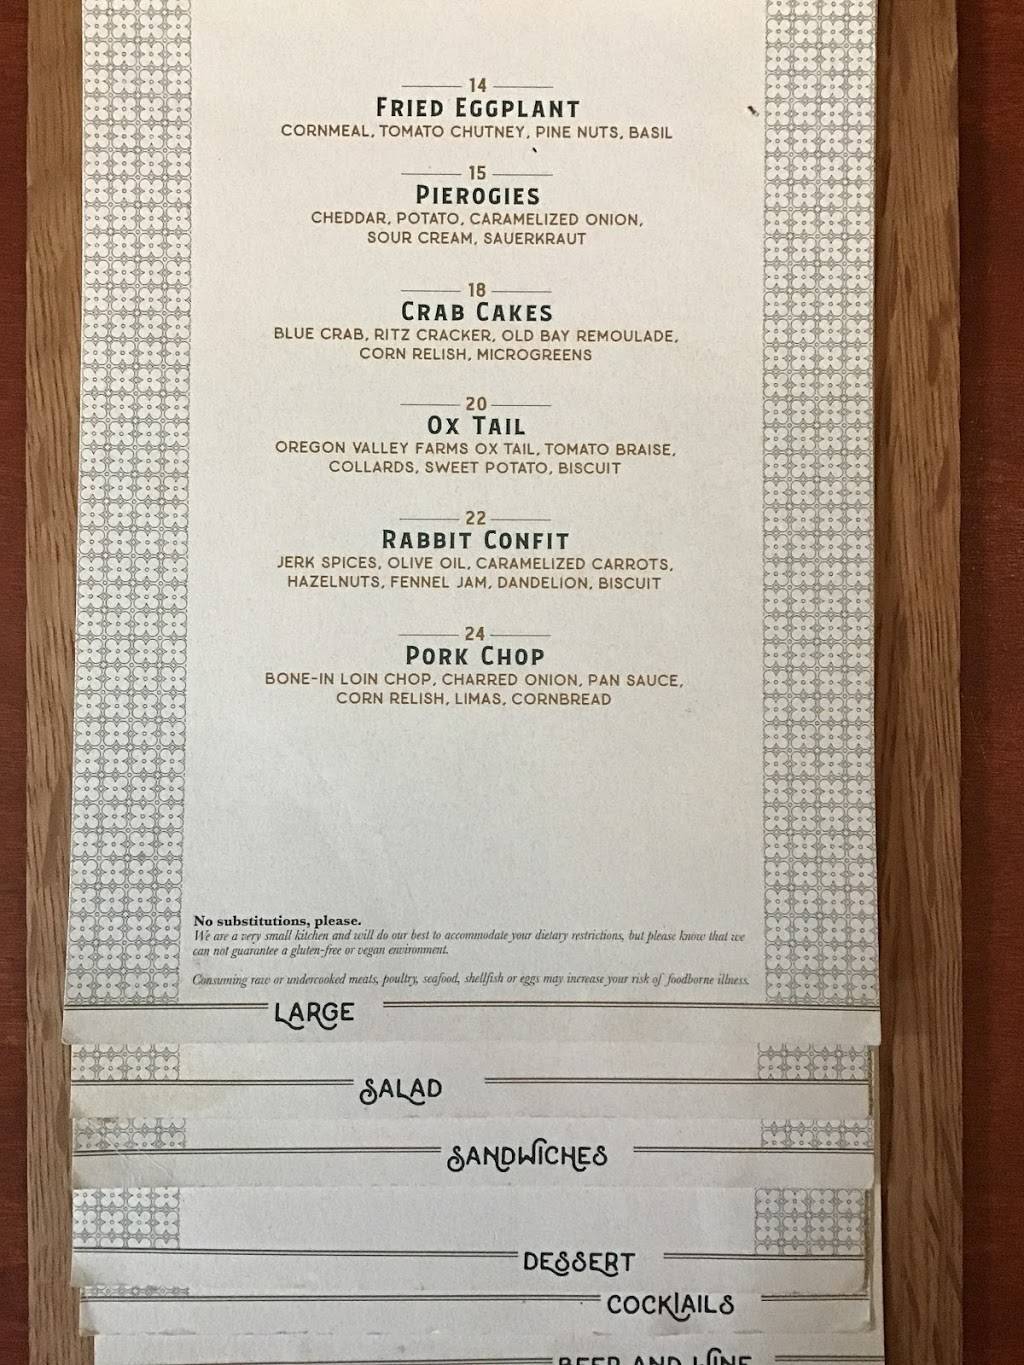 14
FRIED EGGPLANT
CORNMEAL, TOMATO CHUTNEY, PINE NUTS, BASIL
15
PIEROGIES
CHEDDAR, POTATO, CARAMELIZED ONION,
SOUR CREAM, SAUERKRAUT
18
CRAB CAKES
BLUE CRAB, RITZ CRACKER, OLD BAY REMOULADE,
CORN RELISH, MICROGREENS
20
OX TAIL
OREGON VALLEY FARMS OX TAIL, TOMATO BRAISE,
COLLARDS, SWEET POTATO, BISCUIT
22
RABBIT CONFIT
JERK SPICES, OLIVE OIL, CARAMELIZED CARROTS,
HAZELNUTS, FENNEL JAM, DANDELION, BISCUIT
24
PORK CHOP
BONE-IN LOIN CHOP, CHARRED ONION, PAN SAUCE,
CORN RELISH, LIMAS, CORNBREAD
No substitutions, please.
We are a very small kitchen and will do our best to accommodate your dietary restrictions, but please know that we
can not guarantee a gluten-free or vegan environment.
Consuming raw or undercooked meats, poultry, seafood, shellfish or eggs may increase your risk of foodborne illness.
LARGE
SALAD
SANDWICHES
DESSERT
COCKTAILS
BEER AND WINE